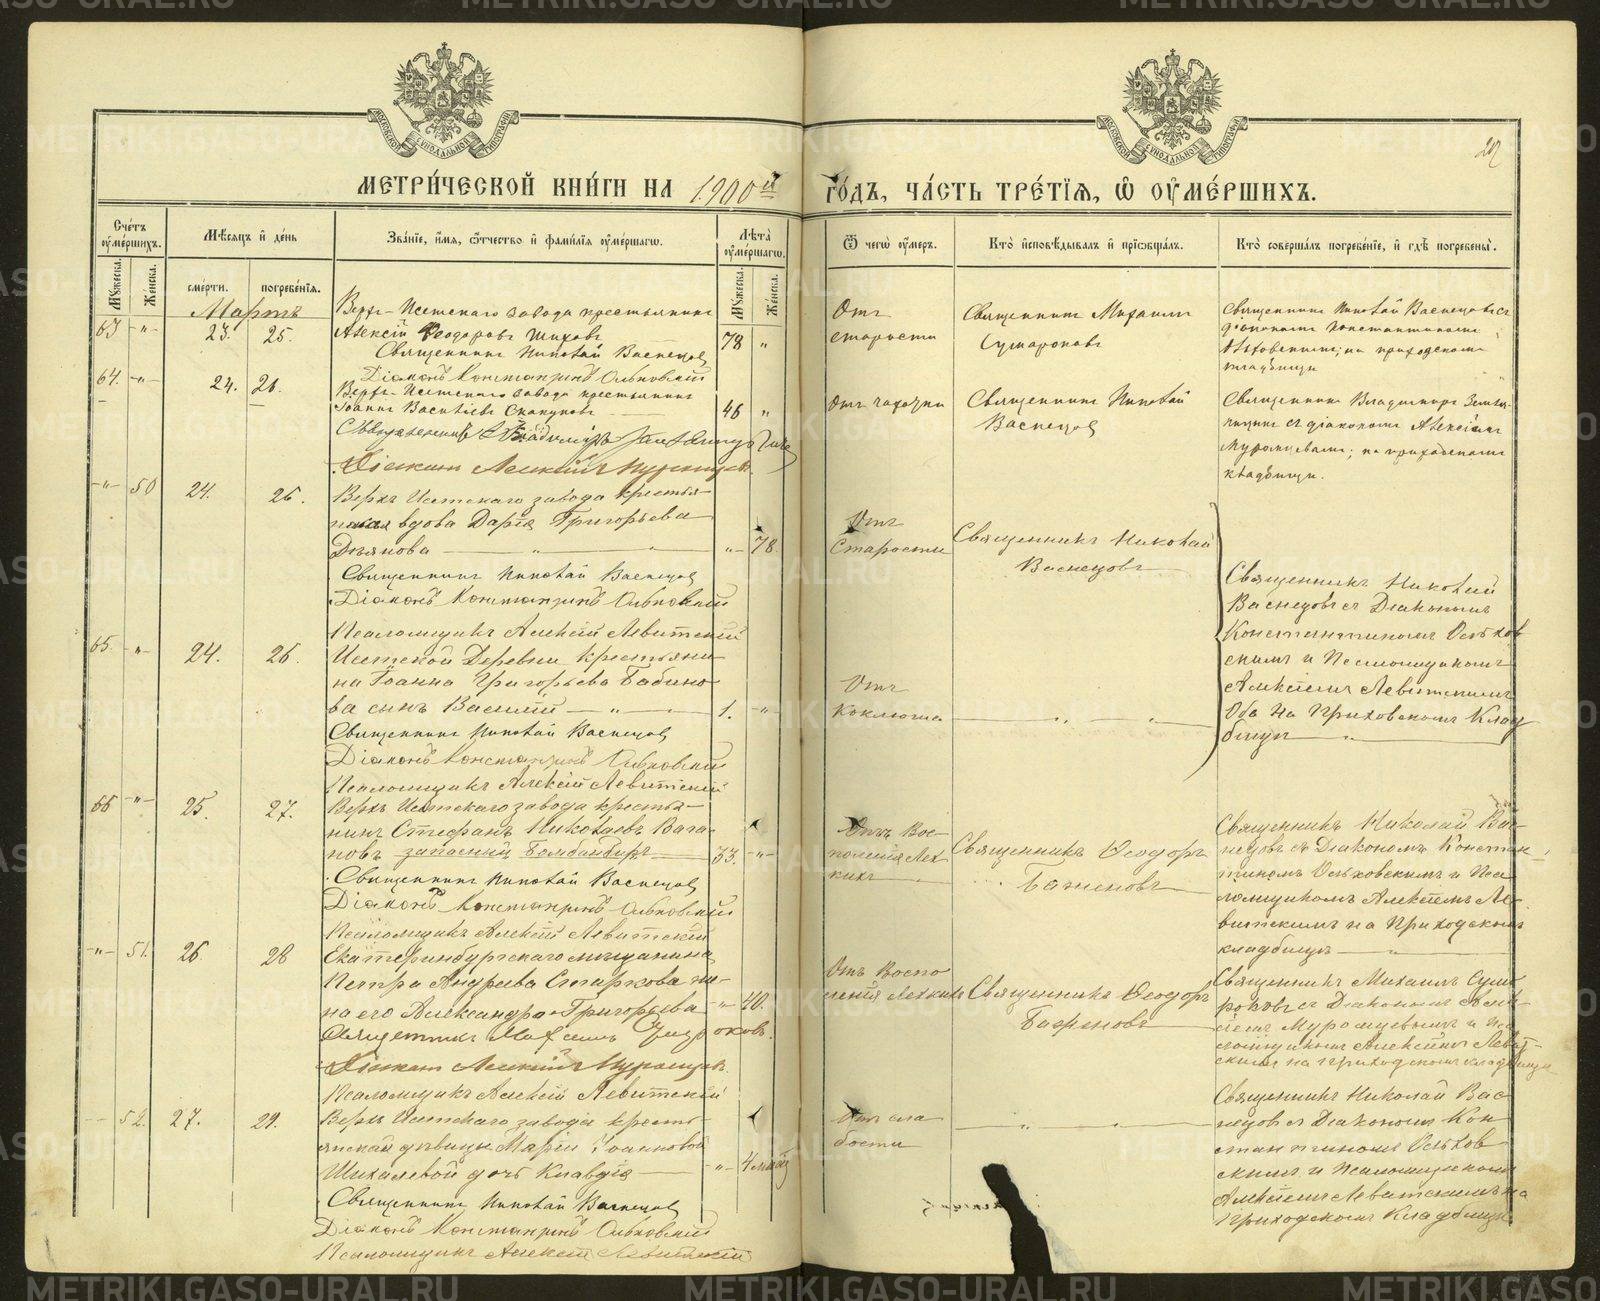 МЕТРИ́ЧЕСКОЙ КНИ́ГИ НА 1900й ГО́ДЪ, ЧА́СТЬ ТРЕ́ТІѦ, Ѽ ОУМЕ́РШИХЪ.
Сче́тъ оуме́ршихъ.
Му́жеска.
Же́нска.
Мѣ́сяцъ и де́нь
сме́рти.
погребе́нія.
Зва́ніе, и́мя, ѻ́тчество и фами́лія оуме́ршагѡ.
Лѣ́та оуме́ршагѡ.
Му́жеска.
Же́нска.
Ѿ чегѡ̀ оу́меръ.
Кто̀ исповѣ́дывалъ и пріѡбща́лъ.
Кто̀ соверша́лъ погребе́ніе, и гдѣ̀ погребены̀.
Мартъ
63 -"- 23. 25.
Верхъ-Исетскаго завода крестьянинъ
Алексій Ѳеодоровъ Шиховъ 78 "
Священникъ Николай Васнецовъ
Діаконъ Константинъ Ольховскій
Отъ
старости
Священникъ Михаилъ
Сумароковъ
Священникъ Николай Васнецовъ съ
діакономъ Константиномъ
Ольховскимъ; на приходскомъ
кладбищѣ
64. -"- 24. 26.
Верхъ-Исетскаго завода крестьянинъ
Іоаннъ Васильевъ Скакуновъ 46 "
Священникъ Владиміръ
Діаконъ Алексій Муромцевъ
Отъ чахотки
Священникъ Николай
Васнецовъ
Священникъ Владиміръ
съ діакономъ Алексіемъ
Муромцевымъ; на приходскомъ
кладбищѣ.
-"- 50 24. 26.
Верхъ Исетскаго завода крестья-
нская вдова Дарія Григорьева
Деянова -"- 78.
Священникъ Николай Васнецовъ
Діаконъ Константинъ Ольховскій
Псаломщикъ Алексій Левитскій
Отъ
Старости
Священникъ Николай
Васнецовъ
Священникъ Николай
Васнецовъ съ Діакономъ
Константиномъ Ольхов
скимъ и Псаломщикомъ
Алексіемъ Левитскимъ
Оба на Приховскомъ Клад
бищѣ
65. -"- 24. 26.
Исетской Деревни крестьяни
на Іоанна Григорьева Бабино
ва сынъ Василій 1. -"-
Священникъ Николай Васнецовъ
Діаконъ Константинъ Ольховскій
Псаломщикъ Алексій Левитскій
Отъ
Коклюша
66 -"- 25. 27.
Верхъ Исетскаго завода крестья-
нинъ Стефанъ Николаевъ Вага-
новъ запасный Бомбандиръ 33. -"-
Священникъ Николай Васнецовъ
Діаконъ Константинъ Ольховскій
Псаломщикъ Алексій Левитскій
Отъ Вос-
поленія Лех
кихъ
Священникъ Ѳеодоръ
Баженовъ
Священникъ Николай Вас-
нецовъ съ Діакономъ Констан-
тиномъ Ольховскимъ и Пса
ломщикомъ Алексіемъ Ле-
витскимъ на Приходскомъ
кладбищѣ
-"- 51. 26. 28
Екатеринбургскаго мѣщанина
Петра Андреева Старкова же-
на его Александра Григорьева -"- 40.
Священникъ Михаилъ Сумароковъ.
Діаконъ Алексій Муромцевъ.
Псаломщикъ Алексій Левитскій
Отъ Воспо
ленія Лехкихъ
Священникъ Ѳеодоръ
Баженовъ
Священникъ Михаилъ Сума
роковъ съ Діакономъ Алек-
сіемъ Муромцевымъ и Пса
ломщикомъ Алексіемъ Левит-
скимъ на приходскомъ кладбищѣ
52. 27. 29.
Верхъ Исетскаго завода кресть-
янской дѣвицы Маріи Іоанновой
Шихалевой дочь Клавдія -"- 4 мѣсяц
Священникъ Николай Васнецовъ
Діаконъ Константинъ Ольховскій
Псаломщикъ Алексій Левитскій
Отъ сла
бости
Священникъ Николай Вас
нецовъ съ Діакономъ Кон
стантиномъ Ольхов
скимъ и Псаломщикомъ
Алексіемъ Левитскимъ на
Приходскомъ Кладбищѣ
METRIKI.GASO-URAL.RU